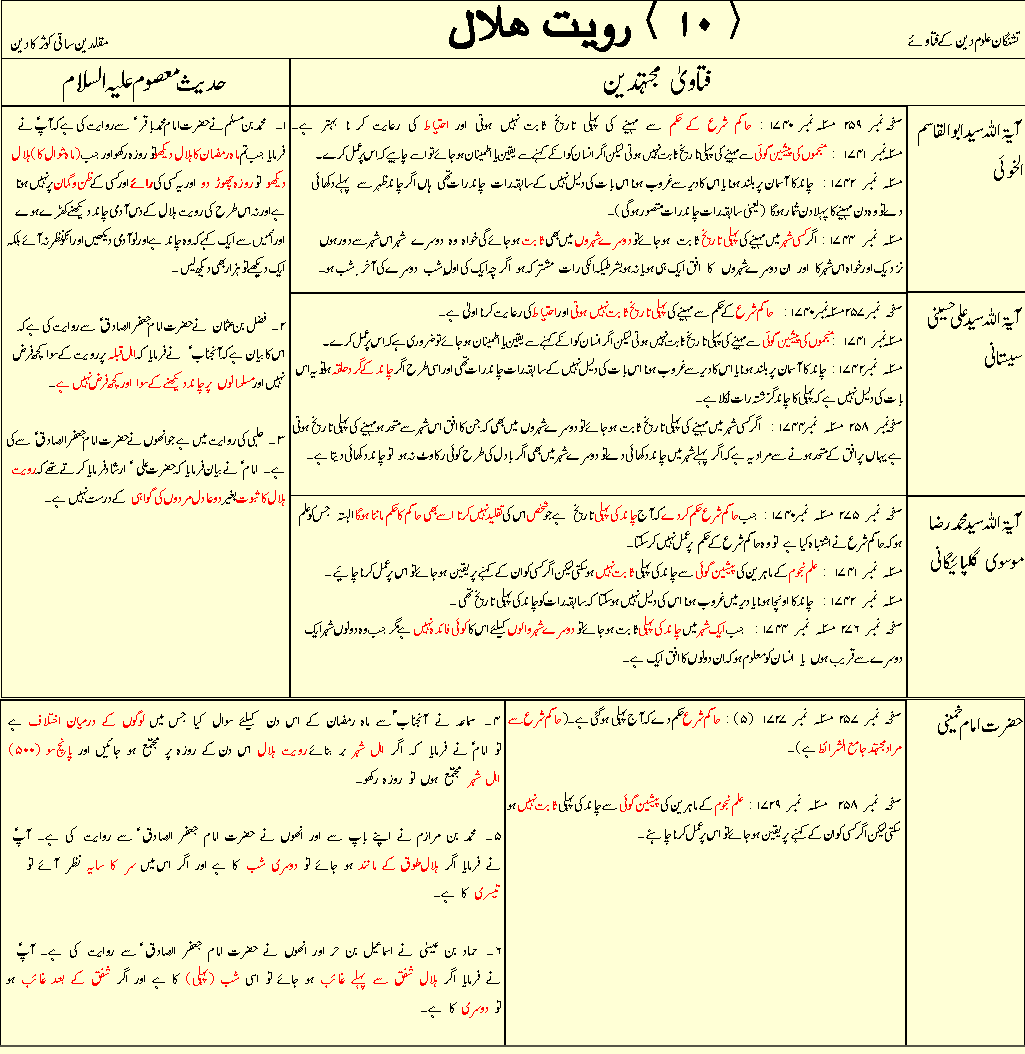 تشنگان علوم دین کے فتاوے
﴿ ۱۰ ﴾ رویت ھلال
مقلدین ساقی کوثر کا دین
فتاویٰ مجتہدین
حدیث معصوم علیہ السلام
آیۃ اللہ سید ابو القاسم
الخوئی
صفحہ نمبر ۲۵۹ مسئلہ نمبر ۱۷۴۰ : حاکم شرع کے حکم سے مہینے کی پہلی تاریخ ثابت نہیں ہوتی اور احتیاط کی رعایت کرنا بہتر ہے۔
مسئلہ نمبر ۱۷۴۱ : منجموں کی پیشین گوئی سے مہینے کی پہلی تاریخ ثابت نہیں ہوتی لیکن اگر انسان کو انکے کہنے سے یقین یا اطمینان ہو جائے تو اسے چاہیے کہ اس پر عمل کرے۔
مسئلہ نمبر ۱۷۴۲ : چاند کا آسمان پر بلند ہونا یا اس کا دیر سے غروب ہونا اس بات کی دلیل نہیں کے سابقہ رات چاند رات تھی ہاں اگر چاند ظہر سے پہلے دکھائی
دے تو وہ دن مہینے کا پہلا دن شمار ہوگا (یعنی سابقہ رات چاند رات متصور ہوگی)۔
مسئلہ نمبر ۱۷۴۴ : اگر کسی شہر میں مہینے کی پہلی تاریخ ثابت ہو جائے تو دوسرے شہروں میں بھی ثابت ہو جائے گی خواہ وہ دوسرے شہر اس شہر سے دور ہوں
نزدیک اور خواہ اس شہر کا اور ان دوسرے شہروں کا افق ایک ہی ہو یا نہ ہو بشرطیکہ انکی رات مشترکہ ہو اگر چہ ایک کی اول شب دوسرے کی آخر شب ہو۔
آیۃ اللہ سید علی حسینی
سیستانی
صفحہ نمبر ۲۵۷ مسئلہ نمبر ۱۷۴۰ : حاکم شرع کے حکم سے مہینے کی پہلی تاریخ ثابت نہیں ہوتی اور احتیاط کی رعایت کرنا اولیٰ ہے۔
مسئلہ نمبر ۱۷۴۱ : منجموں کی پیشین گوئی سے مہینے کی پہلی تاریخ ثابت نہیں ہوتی لیکن اگر انسان کو انکے کہنے سے یقین یا اطمینان ہو جائے تو ضروری ہے کہ اس پر عمل کرے۔
مسئلہ نمبر ۱۷۴۲ : چاند کا آسمان پر بلند ہونا یا اس کا دیر سے غروب ہونا اس بات کی دلیل نہیں کے سابقہ رات چاند رات تھی اور اسی طرح اگر چاند کے گرد حلقہ ہو تو یہ اس
بات کی دلیل نہیں ہے کہ پہلی کا چاند گزشتہ رات نکلا ہے۔
صفحہ نمبر ۲۵۸ مسئلہ نمبر ۱۷۴۴ : اگر کسی شہر میں مہینے کی پہلی تاریخ ثابت ہو جائے تو دوسرے شہروں میں بھی کہ جن کا افق اس شہر سے متحد ہو مہینے کی پہلی تاریخ ہوتی
ہے یہاں پر افق کے متحد ہونے سے مراد یہ ہے کہ اگر پہلے شہر میں چاند دکھائی دے تو دوسرے شہر میں بھی اگر بادل کی طرح کوئی رکاوٹ نہ ہو تو چاند دکھائی دیتا ہے۔
آیۃ اللہ سید محمد رضا
موسوی گلپائیگانی
صفحہ نمبر ۲۷۵ مسئلہ نمبر ۱۷۴۰ : جب حاکم شرع حکم کر دے کہ آج چاند کی پہلی تاریخ ہے جو شخص اس کی تقلید نہیں کرتا اسے بھی حاکم کا حکم ماننا ہوگا البتہ جس کو علم
ہو کہ حاکم شرع نے اشتباہ کیا ہے تو وہ حاکم شرع کے حکم پر عمل نہیں کر سکتا۔
مسئلہ نمبر ۱۷۴۱ : علم نجوم کے ماہرین کی پیشین گوئی سے چاند کی پہلی ثابت نہیں ہو سکتی لیکن اگر کسی کو ان کے کہنے پر یقین ہو جائے تو اس پر عمل کرنا چاہئیے۔
مسئلہ نمبر ۱۷۴۲ : چاند کا اونچا ہونا یا دیر میں غروب ہونا اس کی دلیل نہیں ہو سکتا کہ سابقہ رات کو چاند کی پہلی تاریخ تھی۔
صفحہ نمبر ۲۷۶ مسئلہ نمبر ۱۷۴۴ : جب ایک شہر میں چاند کی پہلی ثابت ہو جائے تو دوسرے شہر والوں کیلئے اس کا کوئی فائدہ نہیں ہے مگر جب وہ دونوں شہر ایک
دوسرے سے قریب ہوں یا انسان کو معلوم ہو کہ ان دونوں کا افق ایک ہے۔
۱۔ محمد بن مسلم نے حضرت امام محمد باقرؑ سے روایت کی ہے کہ آپؑ نے
فرمایا جب تم ماہ رمضان کا ہلال دیکھو تو روزہ رکھو اور جب (ماہ شوال کا) ہلال
دیکھو تو روزہ چھوڑ دو اور یہ کسی کی رائے اور کسی کے ظن و گمان پر نہیں ہوتا
ہے اور نہ اس طرح کی رویت ہلال کے دس آدمی چاند دیکھنے کھڑے ہوے
اور انہیں سے ایک کہے کہ وہ چاند ہے اور نو آدمی دیکھیں اور انکو نظر نہ آئے بلکہ
ایک دیکھے تو ہزار بھی دیکھ لیں۔
۲۔ فضل بن عثمان نے حضرت امام جعفر الصادقؑ سے روایت کی ہے کہ
اس کا بیان ہے کہ آنجنابؑ نے فرمایا کہ اہل قبلہ پر رویت کے سوا کچھ فرض
نہیں اور مسلمانوں پر چاند دیکھنے کے سوا اور کچھ فرض نہیں ہے۔
۳۔ حلبی کی روایت میں ہے جو انھوں نے حضرت امام جعفر الصادقؑ سے کی
ہے۔ امامؑ نے بیان فرمایا کہ حضرت علیؑ ارشاد فرمایا کرتے تھے کہ رویت
ہلال کا ثبوت بغیر دو عادل مردوں کی گواہی کے درست نہیں ہے۔
حضرت امام خمینی
صفحہ نمبر ۲۵۷ مسئلہ نمبر ۱۷۲۷ (۵) : حاکم شرع حکم دے کہ آج پہلی ہو گئی ہے۔ (حاکم شرع سے
مراد مجتہد جامع الشرائط ہے)۔
صفحہ نمبر ۲۵۸ مسئلہ نمبر ۱۷۲۹ : علم نجوم کے ماہرین کی پیشین گوئی سے چاند کی پہلی ثابت نہیں ہو
سکتی لیکن اگر کسی کو ان کے کہنے پر یقین ہو جائے تو اس پر عمل کرنا چاہئے۔
۴۔ سماعہ نے آنجنابؑ سے ماہ رمضان کے اس دن کیلئے سوال کیا جس میں لوگوں کے درمیان اختلاف ہے
تو امامؑ نے فرمایا کہ اگر اہل شہر بر بنائے رویت ہلال اس دن کے روزہ پر مجتمع ہو جائیں اور پانچ سو (۵۰۰)
اہل شہر مجتمع ہوں تو روزہ رکھو۔
۵۔ محمد بن مرازم نے اپنے باپ سے اور انھوں نے حضرت امام جعفر الصادقؑ سے روایت کی ہے۔ آپؑ
نے فرمایا اگر ہلال طوق کے مانند ہو جائے تو دوسری شب کا ہے اور اگر اس میں سر کا سایہ نظر آئے تو
تیسری کا ہے۔
۶۔ حماد بن عیسیٰ نے اسماعیل بن حر اور انھوں نے حضرت امام جعفر الصادقؑ سے روایت کی ہے۔ آپؑ
نے فرمایا اگر ہلال شفق سے پہلے غائب ہو جائے تو اسی شب (پہلی) کا ہے اور اگر شفق کے بعد غائب ہو
تو دوسری کا ہے۔